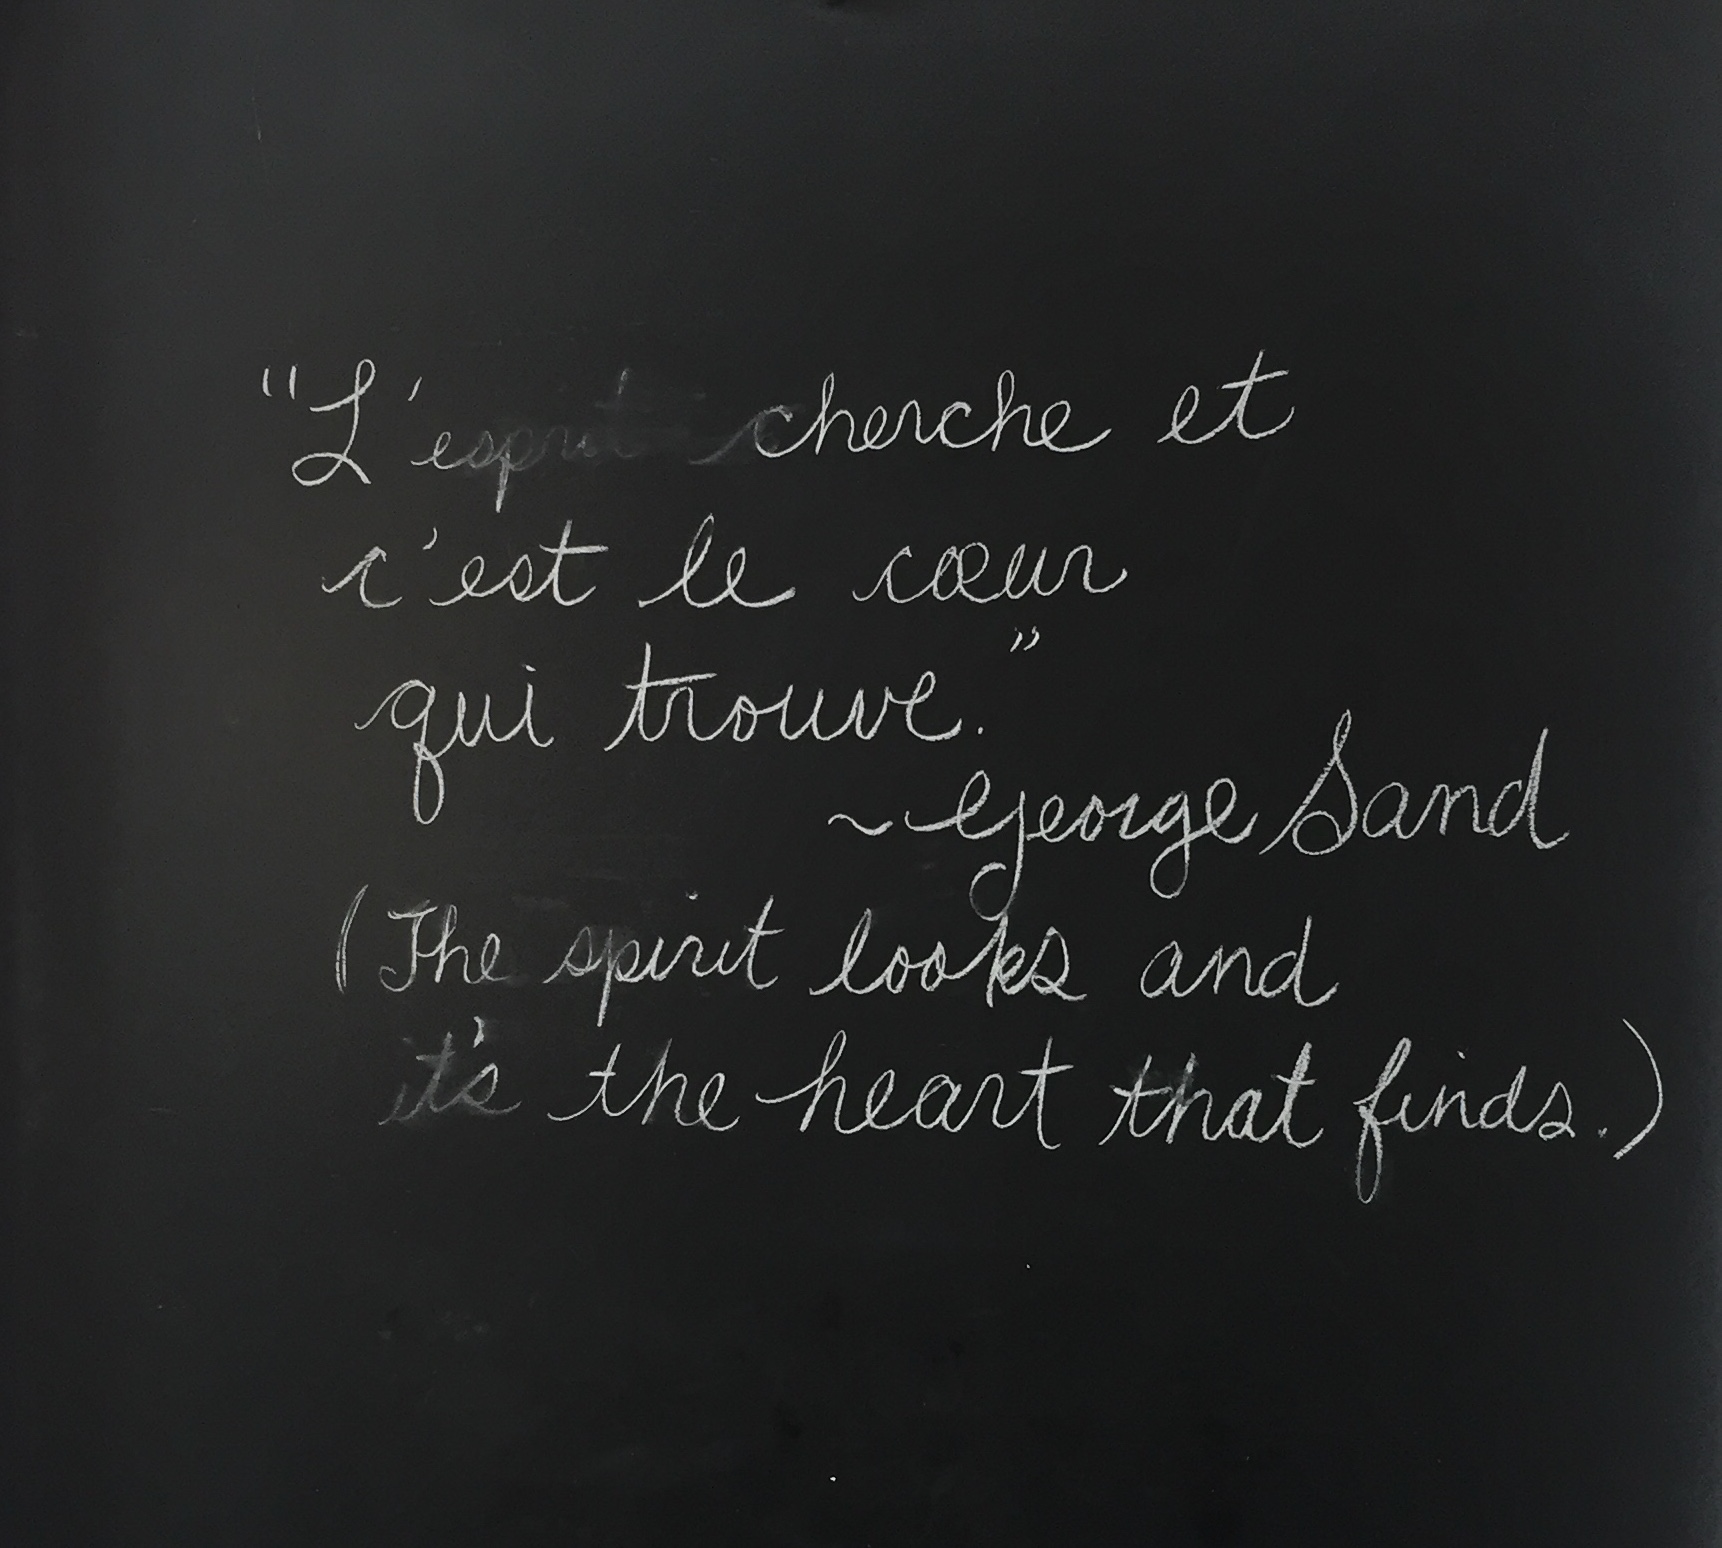 "L'esprit cherche et
c'est le cœur
qui trouve."
~George Sand
(The spirit looks and
it's the heart that finds.)